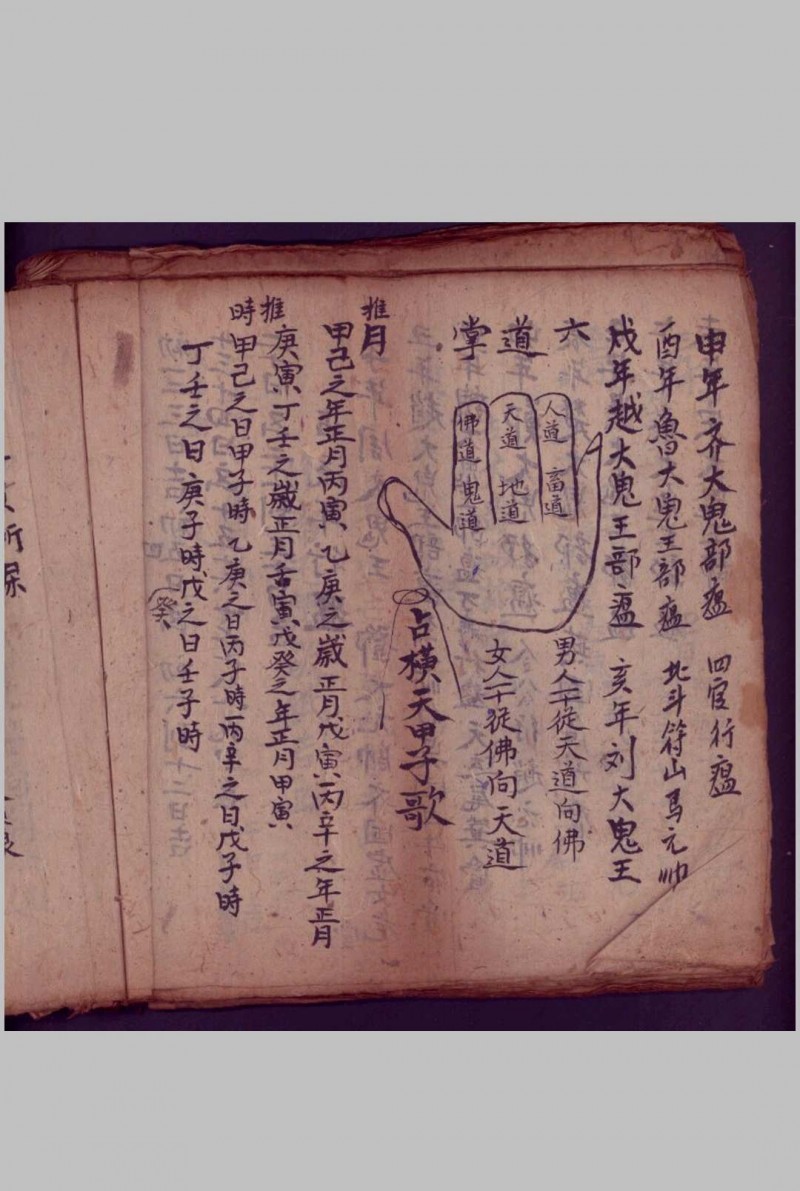 申年齐大鬼部瘟 四官行瘟
酉年魯大鬼王部瘟 北斗符山馬元帅
戌年越大鬼王部瘟 亥年刘大鬼王
六道掌
人道 畜道
天道 地道
佛道 鬼道
男人干從天道向佛
女人干從佛向天道
占橫天甲子歌
推月
甲己之年正月丙寅 乙庚之歲正月戊寅 丙辛之年正月
庚寅丁壬之歲正月壬寅戊癸之年正月甲寅
推時
甲己之日甲子時乙庚之日丙子時丙辛之日戊子時
丁壬之日庚子時戊之日壬子時
癸